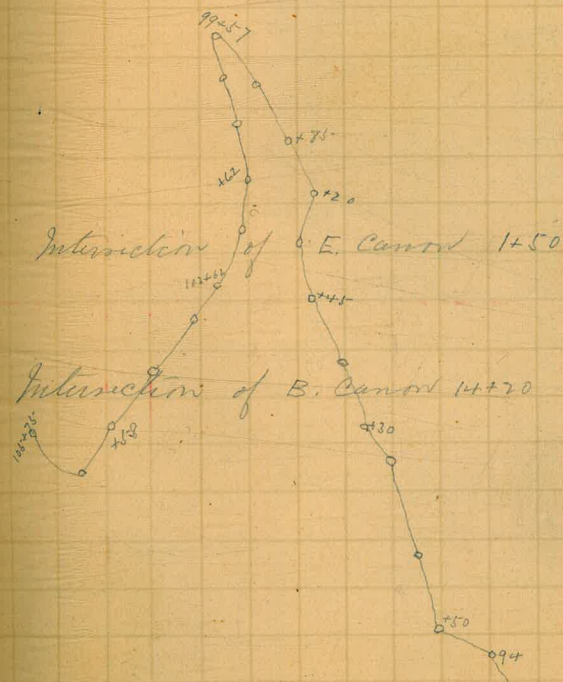 99+57
+85
+62
+20
Intersection of E. Canon 1+50
102+62
+45
Intersection of B. Canon 14+20
105+75
+58
+30
+50
94